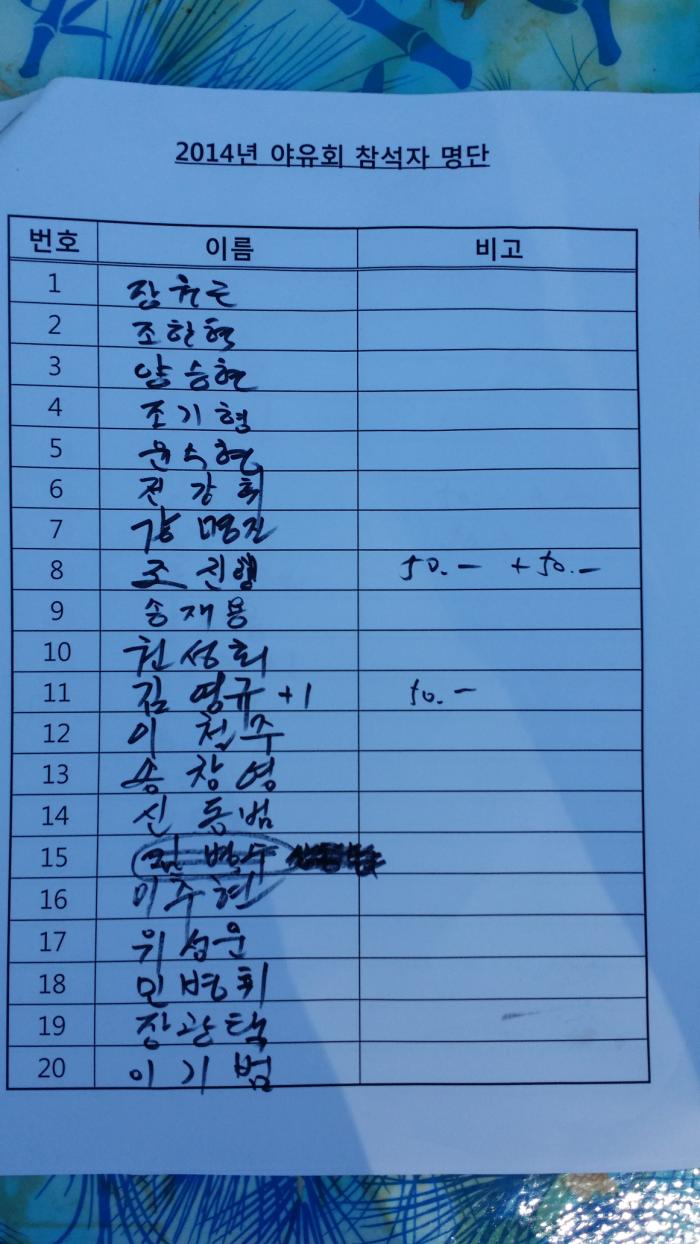 2014년 야유회 참석자 명단
번호 이름 비고
1
2 조한혁
3 양승현
4 조기형
5 윤석현
6 전강희
7 강명진
8 조진행 50.- +50.-
9 송재용
10 천성희
11 김영규 +1 50.-
12 이철주
13 송창영
14 신동범
15
16 이주현
17 위성운
18 민병휘
19 장관택
20 이기범